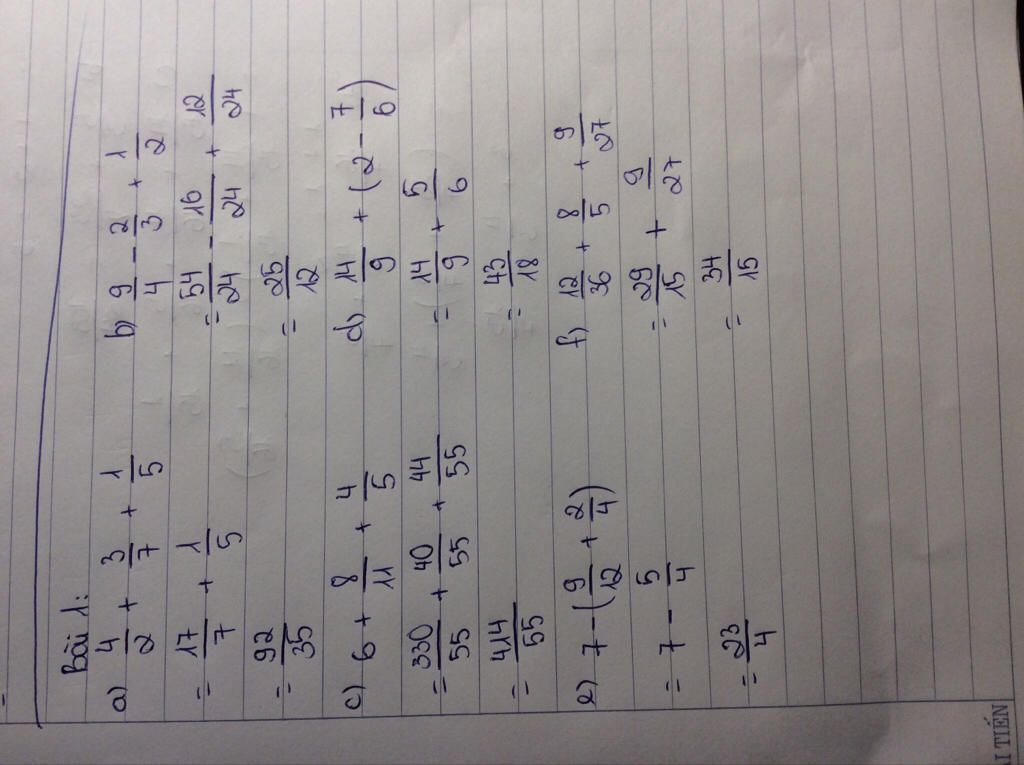 Bài 1:
a) 4/2 + 3/7 + 1/5
= 17/7 + 1/5
= 92/35
b) 9/4 - 2/3 + 1/2
= 54/24 - 16/24 + 12/24
= 25/12
c) 6 + 8/11 + 4/5
= 330/55 + 40/55 + 44/55
= 414/55
d) 14/9 + (2 - 7/6)
= 14/9 + 5/6
= 43/18
e) 7 - (9/12 + 2/4)
= 7 - 5/4
= 23/4
f) 12/36 + 8/5 + 9/27
= 29/15 + 9/27
= 34/15
TIẾN